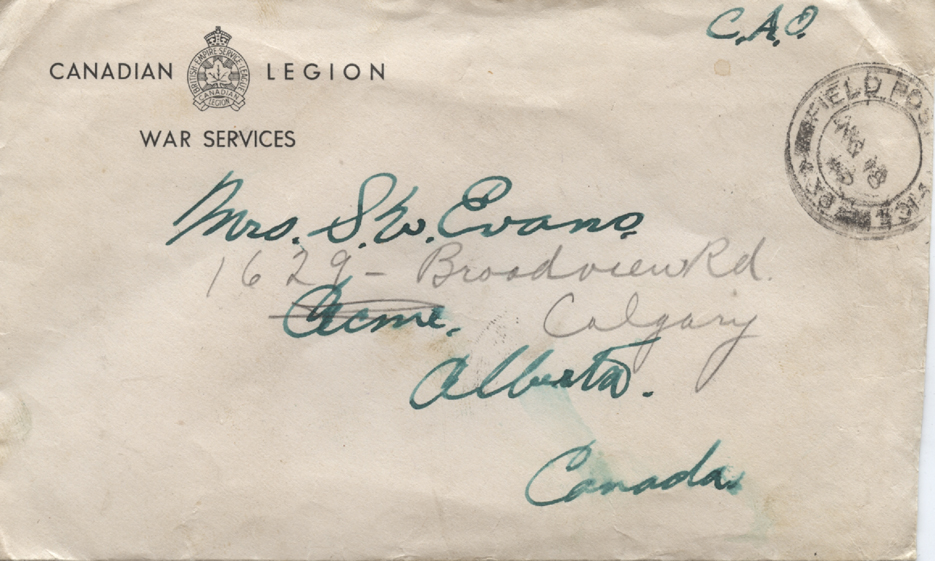 C.A.O.
CANADIAN LEGION
BRITISH EMPIRE SERVICE LEAGUE
CANADIAN
LEGION
WAR SERVICES
FIELD POST
Mrs. S. W. Evans.
1629 - Broadview Rd.
Acme. Calgary
Alberta.
Canada.